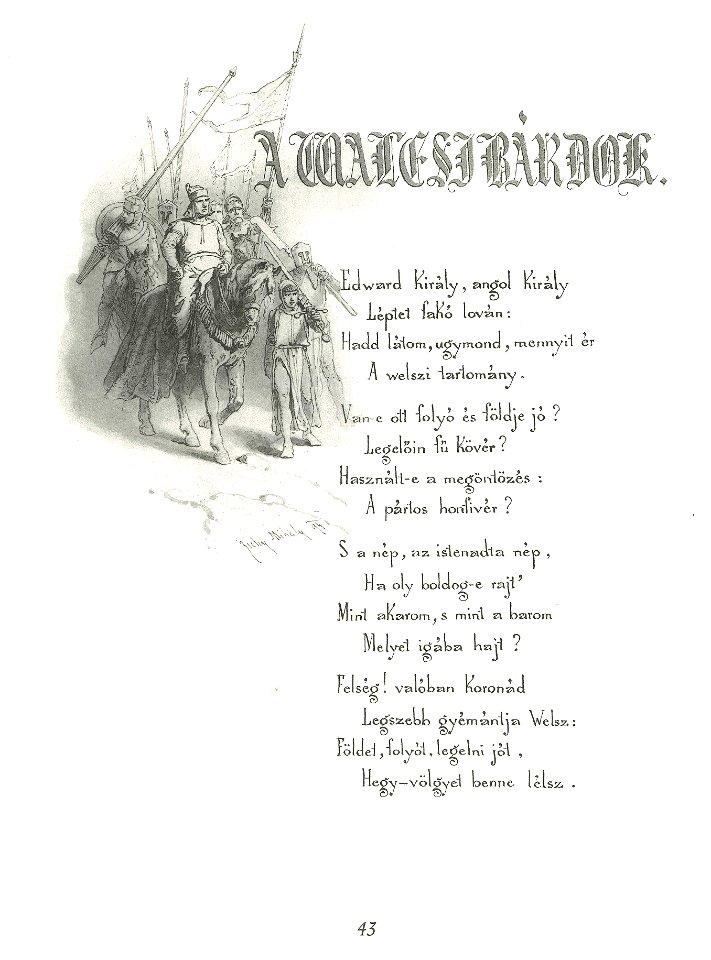 A WALESI BÁRDOK.
Edward Király, angol Király
Léptet fakó lován:
Hadd látom, ugymond, mennyit ér
A welszi tartomány.
Van-e ott folyó és földje jó?
Legelőin fű Kövér?
Használt-e a megöntözés:
A pártos honfivér?
S a nép, az istenadta nép,
Ha oly boldog-e rajt'
Mint aKarom, s mint a barom
Melyet igába hajt?
Felség! valóban Koronád
Legszebb gyémántja Welsz:
Földet, folyót, legelni jót,
Hegy-völgyet benne lélsz.
Zichy Mihály
43